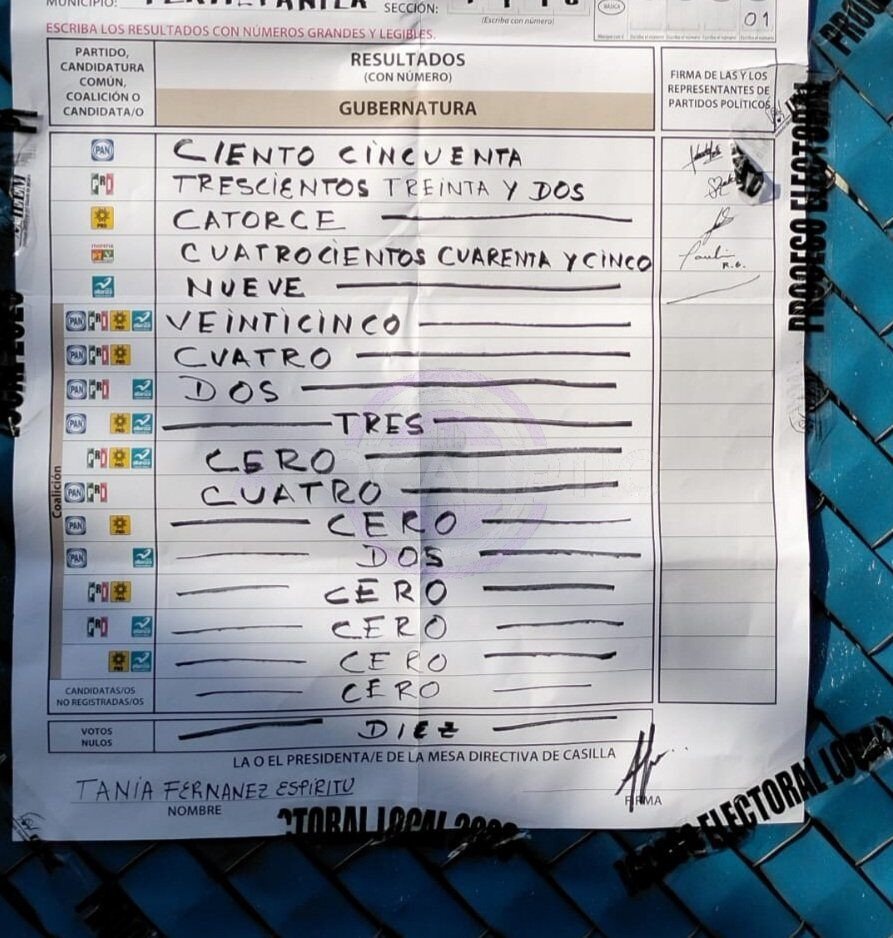 MUNICIPIO:
SECCIÓN:
(Escriba con número)
BÁSICA
01
ESCRIBA LOS RESULTADOS CON NÚMEROS GRANDES Y LEGIBLES.
PARTIDO, CANDIDATURA COMÚN, COALICIÓN O CANDIDATA/O
RESULTADOS
(CON NÚMERO)
GUBERNATURA
FIRMA DE LAS Y LOS REPRESENTANTES DE PARTIDOS POLÍTICOS
PAN CIENTO CINCUENTA
PRI TRESCIENTOS TREINTA Y DOS
PRD CATORCE
morena PT CUATROCIENTOS CUARENTA Y CINCO
alianza NUEVE
PAN PRI PRD alianza VEINTICINCO
PAN PRI PRD CUATRO
PAN PRI alianza DOS
PAN PRD alianza TRES
PRI PRD alianza CERO
PAN PRI CUATRO
PAN PRD CERO
PAN alianza DOS
PRI PRD CERO
PRI alianza CERO
PRD alianza CERO
Coalición
CANDIDATAS/OS NO REGISTRADAS/OS CERO
VOTOS NULOS DIEZ
LA O EL PRESIDENTA/E DE LA MESA DIRECTIVA DE CASILLA
TANIA FERNANEZ ESPIRITU
NOMBRE
FIRMA
PROCESO ELECTORAL
CTORAL LOCAL
ELECTORAL LOCAL